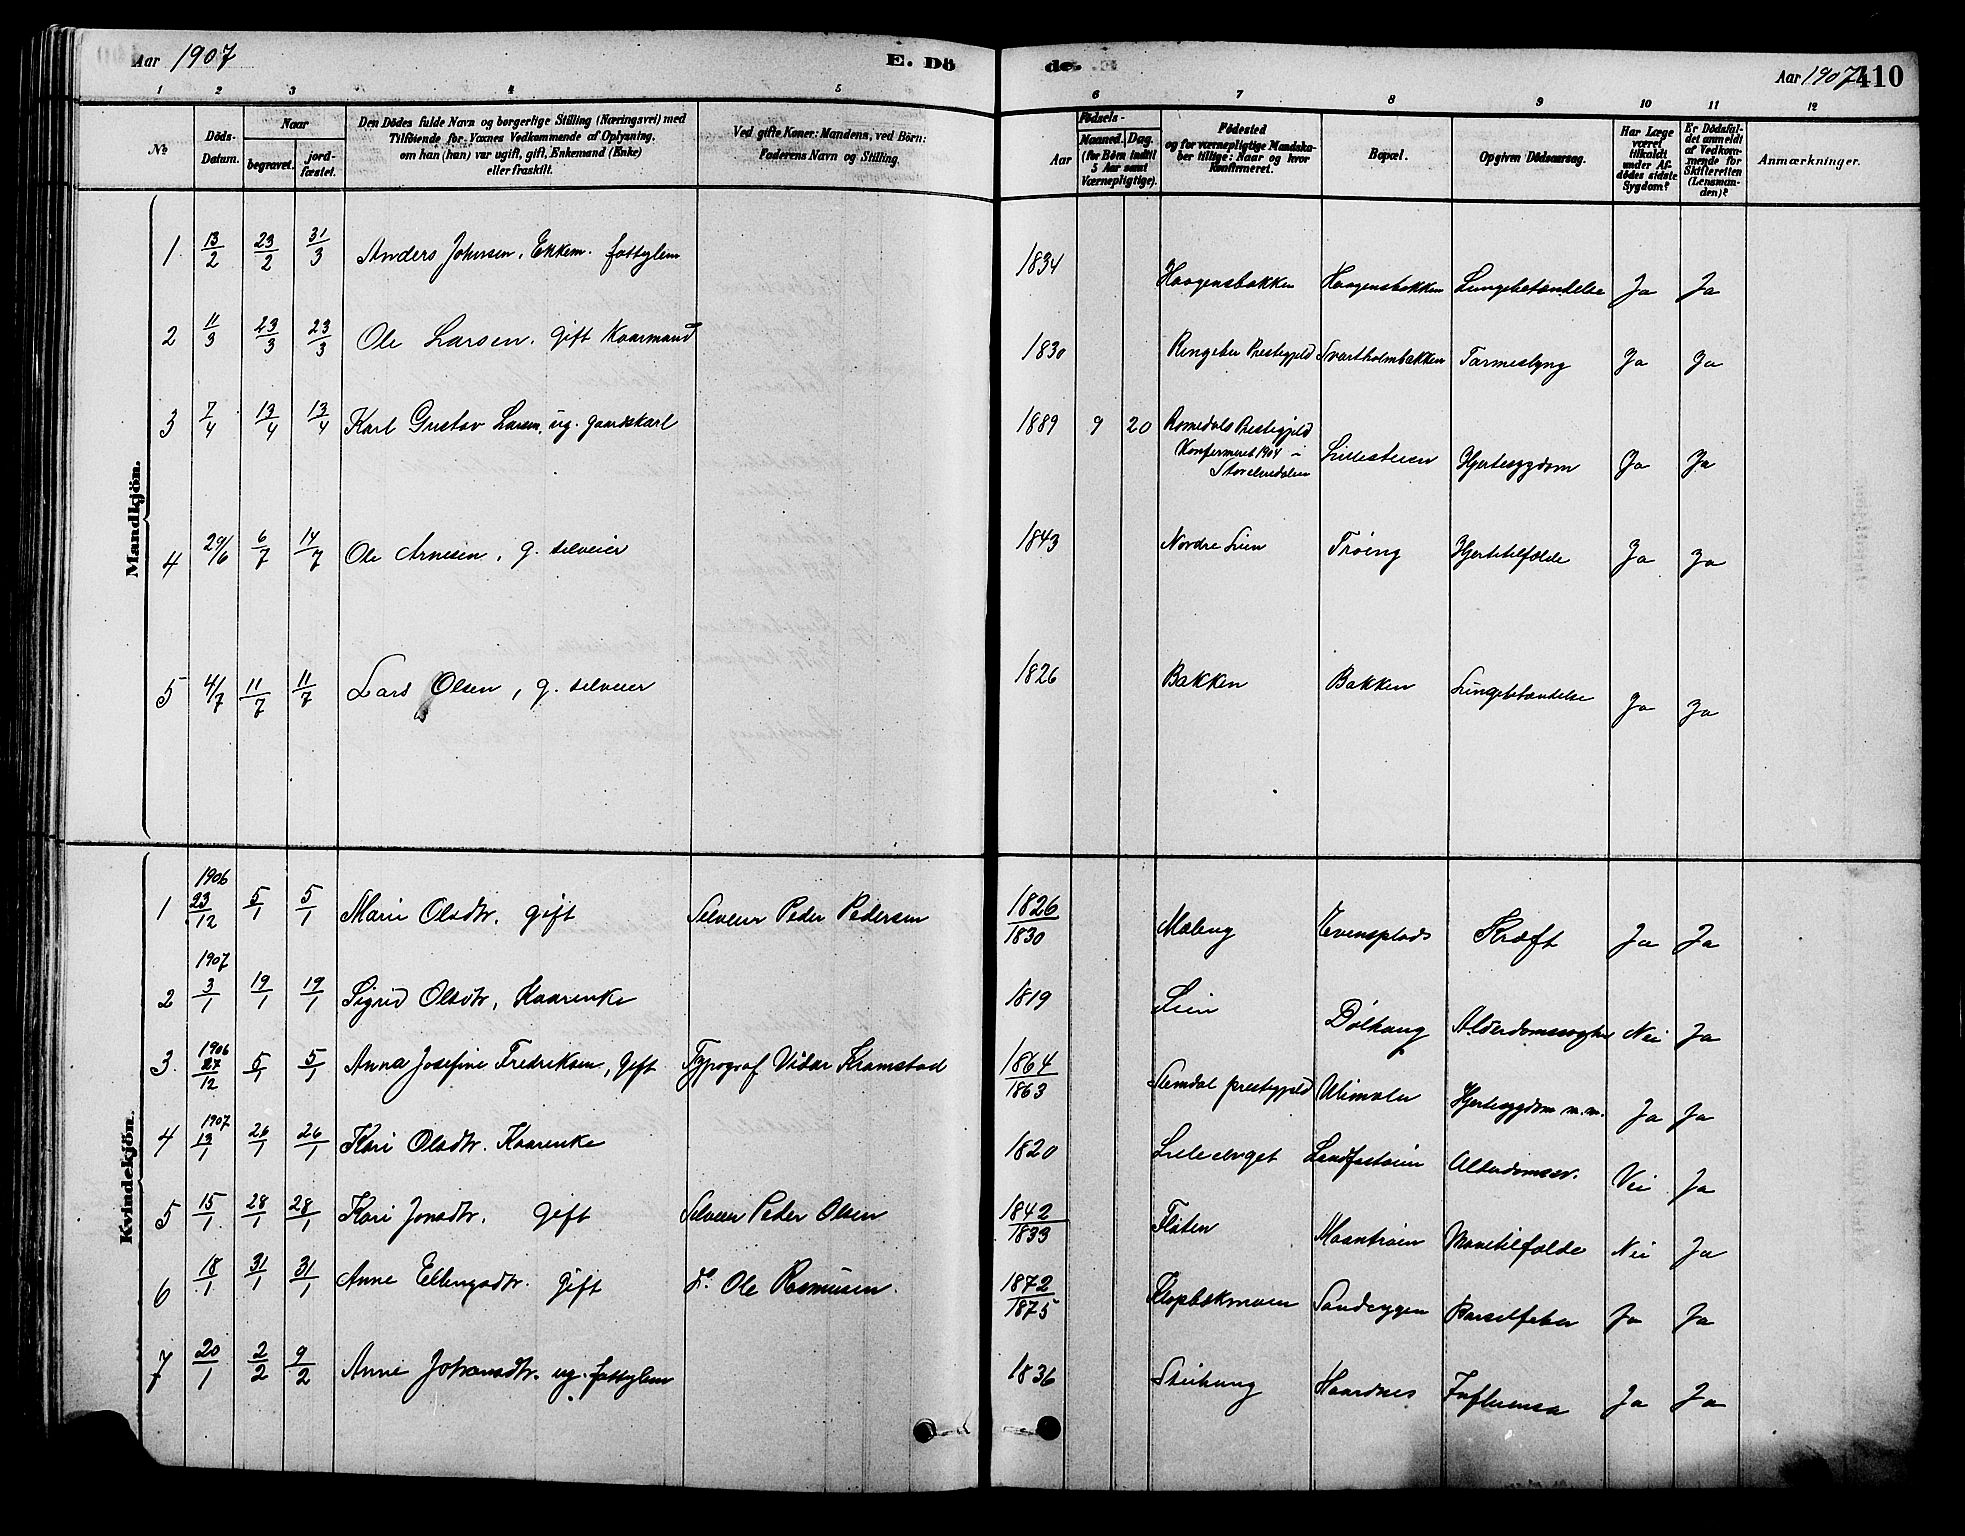 Aar 1907
E. Dö
de.
Aar 1907
410
1 2 3 4 5 6 7 8 9 10 11 12
No
Döds-Datum.
Naar
begravet.
jord-fæstet.
Den Dödes fulde Navn og borgerlige Stilling (Næringsvei) med
Tilföiende for Voxnes Vedkommende af Oplysning,
om han (hun) var ugift, gift, Enkemand (Enke)
eller fraskilt.
Ved gifte Koner: Mandens, ved Börn:
Faderens Navn og Stilling.
Födsels-
Aar
Maaned. Dag.
(for Börn indtil
5 Aar samt
Værnepligtige).
Födested
og for værnepligtige Mandska-
ber tillige: Naar og hvor
Konfirmeret.
Bopæl.
Opgiven Dödsaarsag.
Har Læge
været
tilkaldt
under Af-
dödes sidste
Sygdom?
Er Dödsfal-
det anmeldt
af Vedkom-
mende for
Skifteretten
(Lensman-
den)?
Anmærkninger.
Mandkjön.
1 13/2 23/2 31/3 Anders Johnsen, Enkem. fattiglem 1834 Haagensbakken Haagensbakken Lungebetændelse Ja Ja
2 11/3 23/3 23/3 Ole Larsen. gift Kaarmand 1830 Ringebu Prestegjeld Svartholmbakken Tarmeslyng Ja Ja
3 7/4 13/4 13/4 Karl Gustav Larsen, ug. gaardskarl 1889 9 20 Romedals Prestegjeld
Konfirmeret 1904 i
Storelvedalen Lillesteien Hjertesygdom Ja Ja
4 29/6 6/7 14/7 Ole Arnesen, g. selveier 1843 Nordre Lien Trøing Hjertetilfælde Ja Ja
5 4/7 11/7 11/7 Lars Olsen, g. selveier 1826 Bakken Bakken Lungebetændelse Ja Ja
Kvindekjön.
1 1906 23/12 5/1 5/1 Marie Olsdtr. gift Selveier Peder Pedersen 1826/1830 Maleng Evensplads Kræft Ja Ja
2 1907 3/1 19/1 19/1 Sigrid Olsdtr, Kaarenke 1819 Lien Dölhaug Nei Ja
3 1906 27/12 5/1 5/1 Anna Josefine Fredriksen, gift Typograf Vidar Kramstad 1864/1863 prestegjeld Hjertesygdom m.m. Ja Ja
4 1907 13/1 26/1 26/1 Kari Olsdtr. Kaarenke 1820 Alderdomssv. Nei Ja
5 15/1 28/1 28/1 Kari Jonsdtr. gift Selveier Peder Olsen 1842/1833 Flaten Mavetilfælde Nei Ja
6 18/1 31/1 31/1 Anne Ellengsdtr. gift do. Ole Rasmusen. 1872/1875 Barselfeber Ja Ja
7 20/1 2/2 9/2 Anne Johansdtr. ug. fattiglem 1836 Steihaug Haardnes Influensa Ja Ja